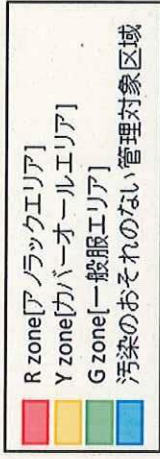 R zone[アノラックエリア]
Y zone[カバーオールエリア]
G zone[一般服エリア]
汚染のおそれのない管理対象区域